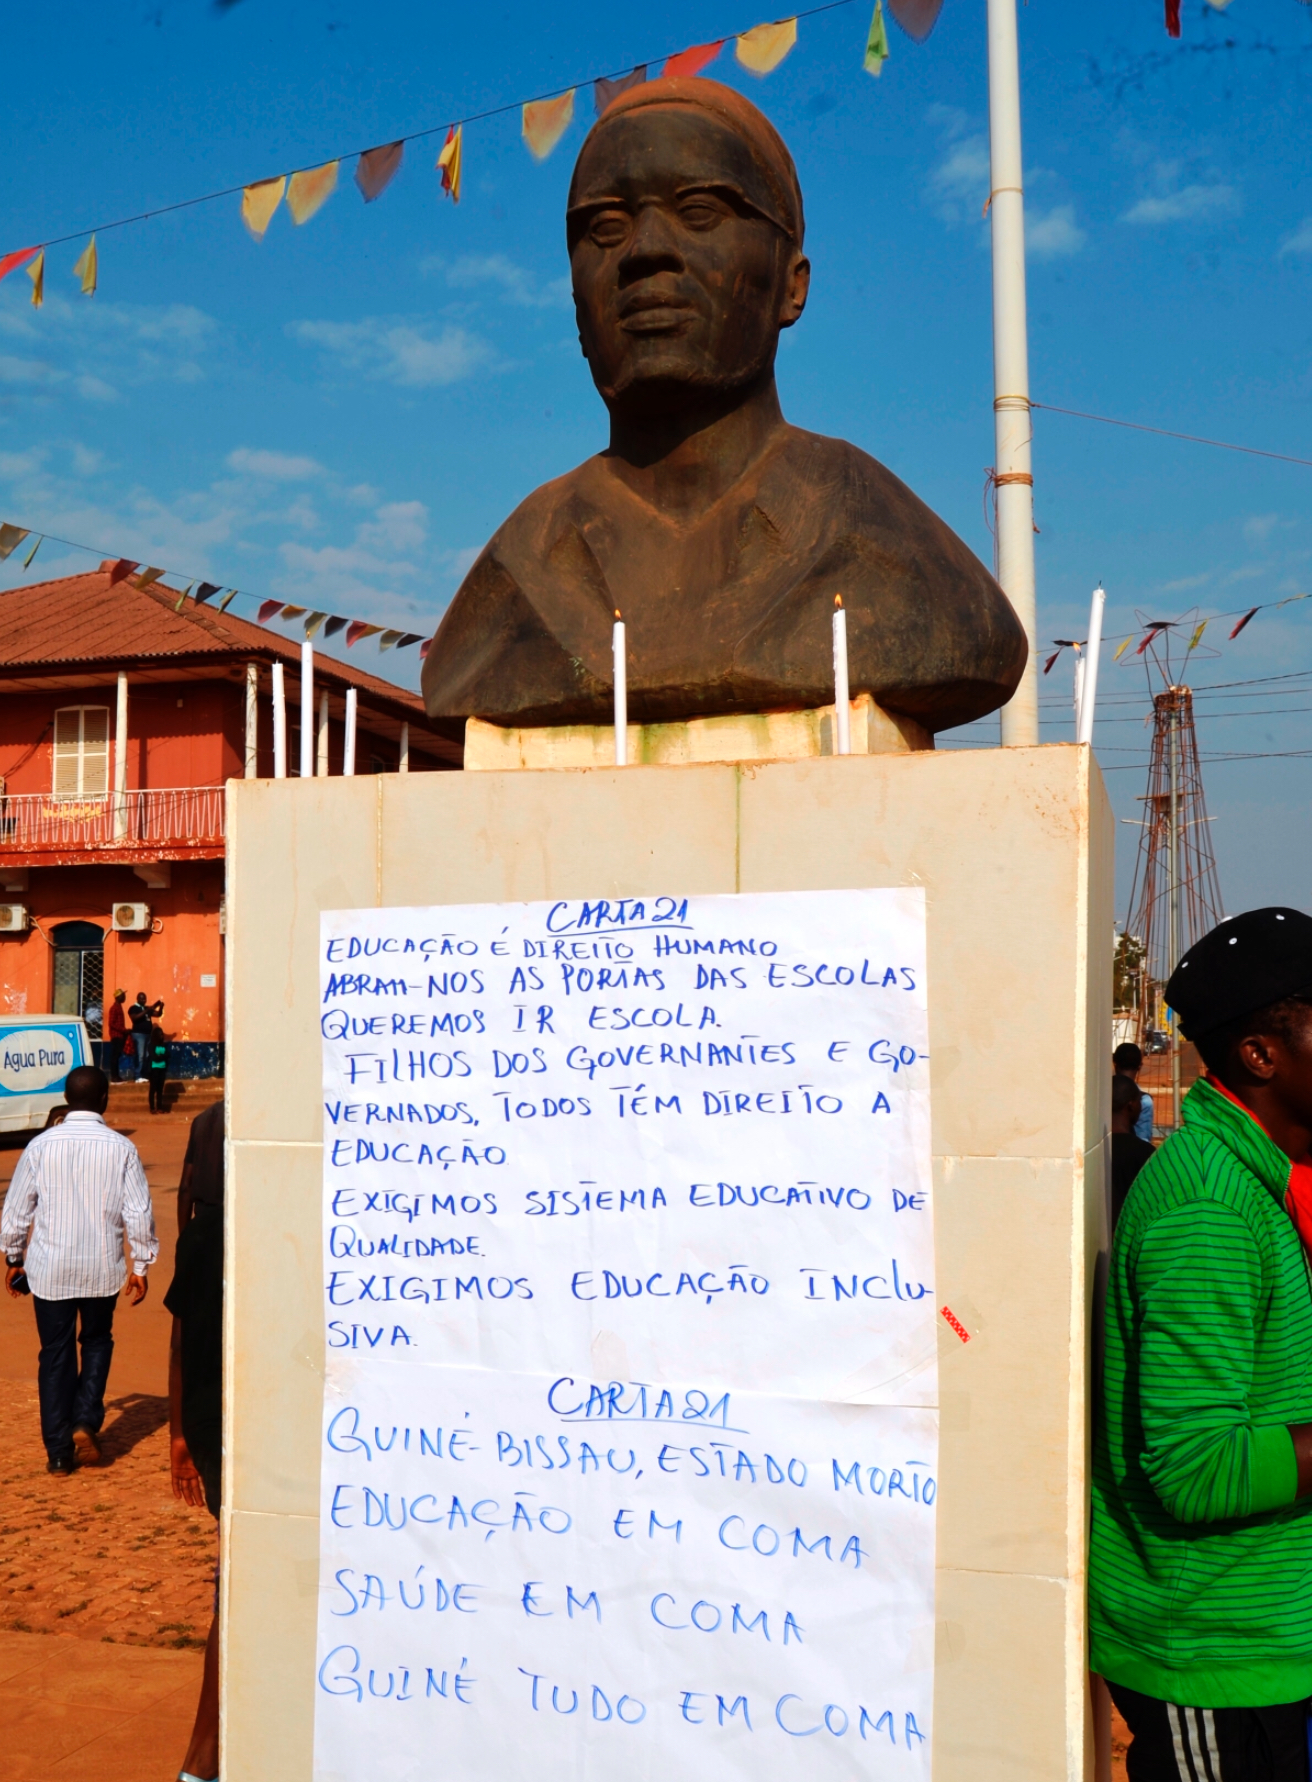 Agua Pura
CARTA 21
EDUCAÇÃO É DIREITO HUMANO
ABRAM-NOS AS PORTAS DAS ESCOLAS
QUEREMOS IR ESCOLA.
FILHOS DOS GOVERNANTES E GO-
VERNADOS, TODOS TÉM DIREITO A
EDUCAÇÃO
EXIGIMOS SISTEMA EDUCATIVO DE
QUALIDADE.
EXIGIMOS EDUCAÇÃO INCLU-
SIVA.
CARTA 21
GUINÉ-BISSAU, ESTADO MORTO
EDUCAÇÃO EM COMA
SAÚDE EM COMA
GUINÉ TUDO EM COMA